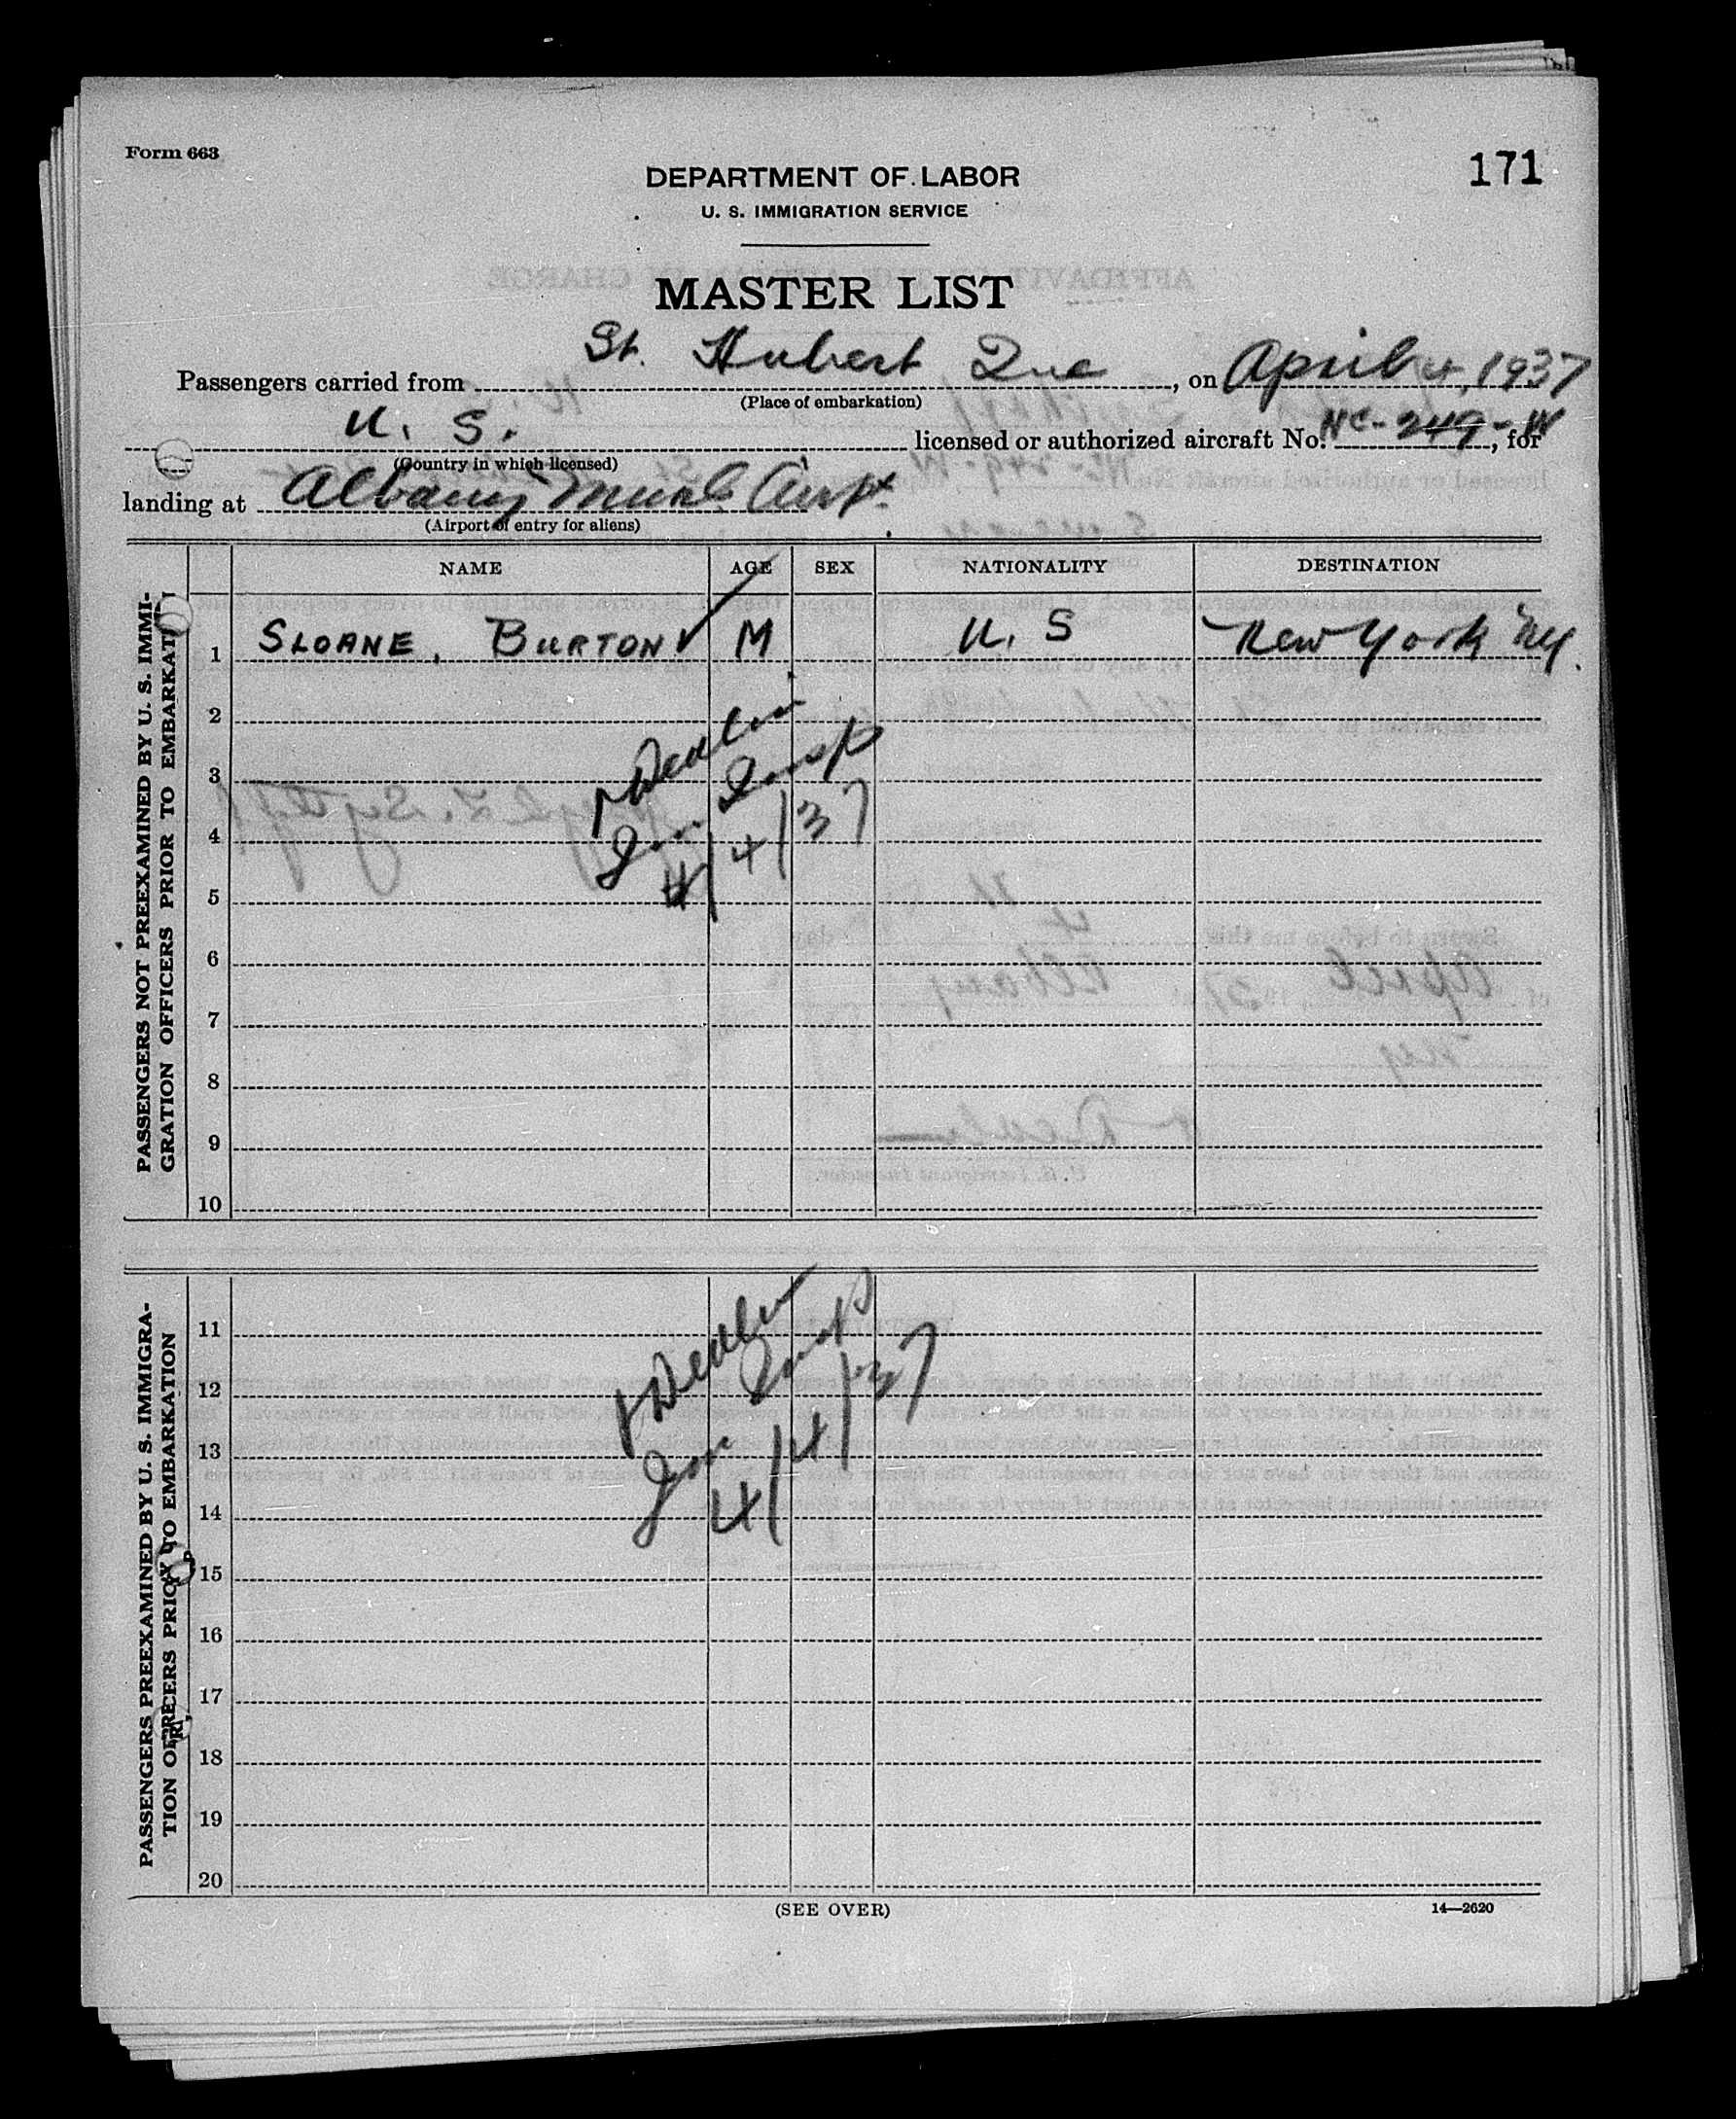 Form 663
171
DEPARTMENT OF LABOR
U. S. IMMIGRATION SERVICE
MASTER LIST
Passengers carried from St. Hubert Que, on April 4, 1937
(Place of embarkation)
U. S. licensed or authorized aircraft No. NC-249-W, for
(Country in which licensed)
landing at Albany Munc. Airpt.
(Airport of entry for aliens)
NAME AGE SEX NATIONALITY DESTINATION
PASSENGERS NOT PREEXAMINED BY U. S. IMMI-
GRATION OFFICERS PRIOR TO EMBARKATION
1 SLOANE, BURTON M U. S New York NY.
2
3
4
5
6
7
8
9
10
Imm. Insp
4/4/37
PASSENGERS PREEXAMINED BY U. S. IMMIGRA-
TION OFFICERS PRIOR TO EMBARKATION
11
12
13
14
15
16
17
18
19
20
Imm Insp
4/4/37
(SEE OVER)
14—2620